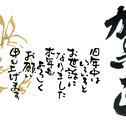 旧年中は
いろいろと
お世話に
なりました
本年も
よろしく
お願い
申し上げます